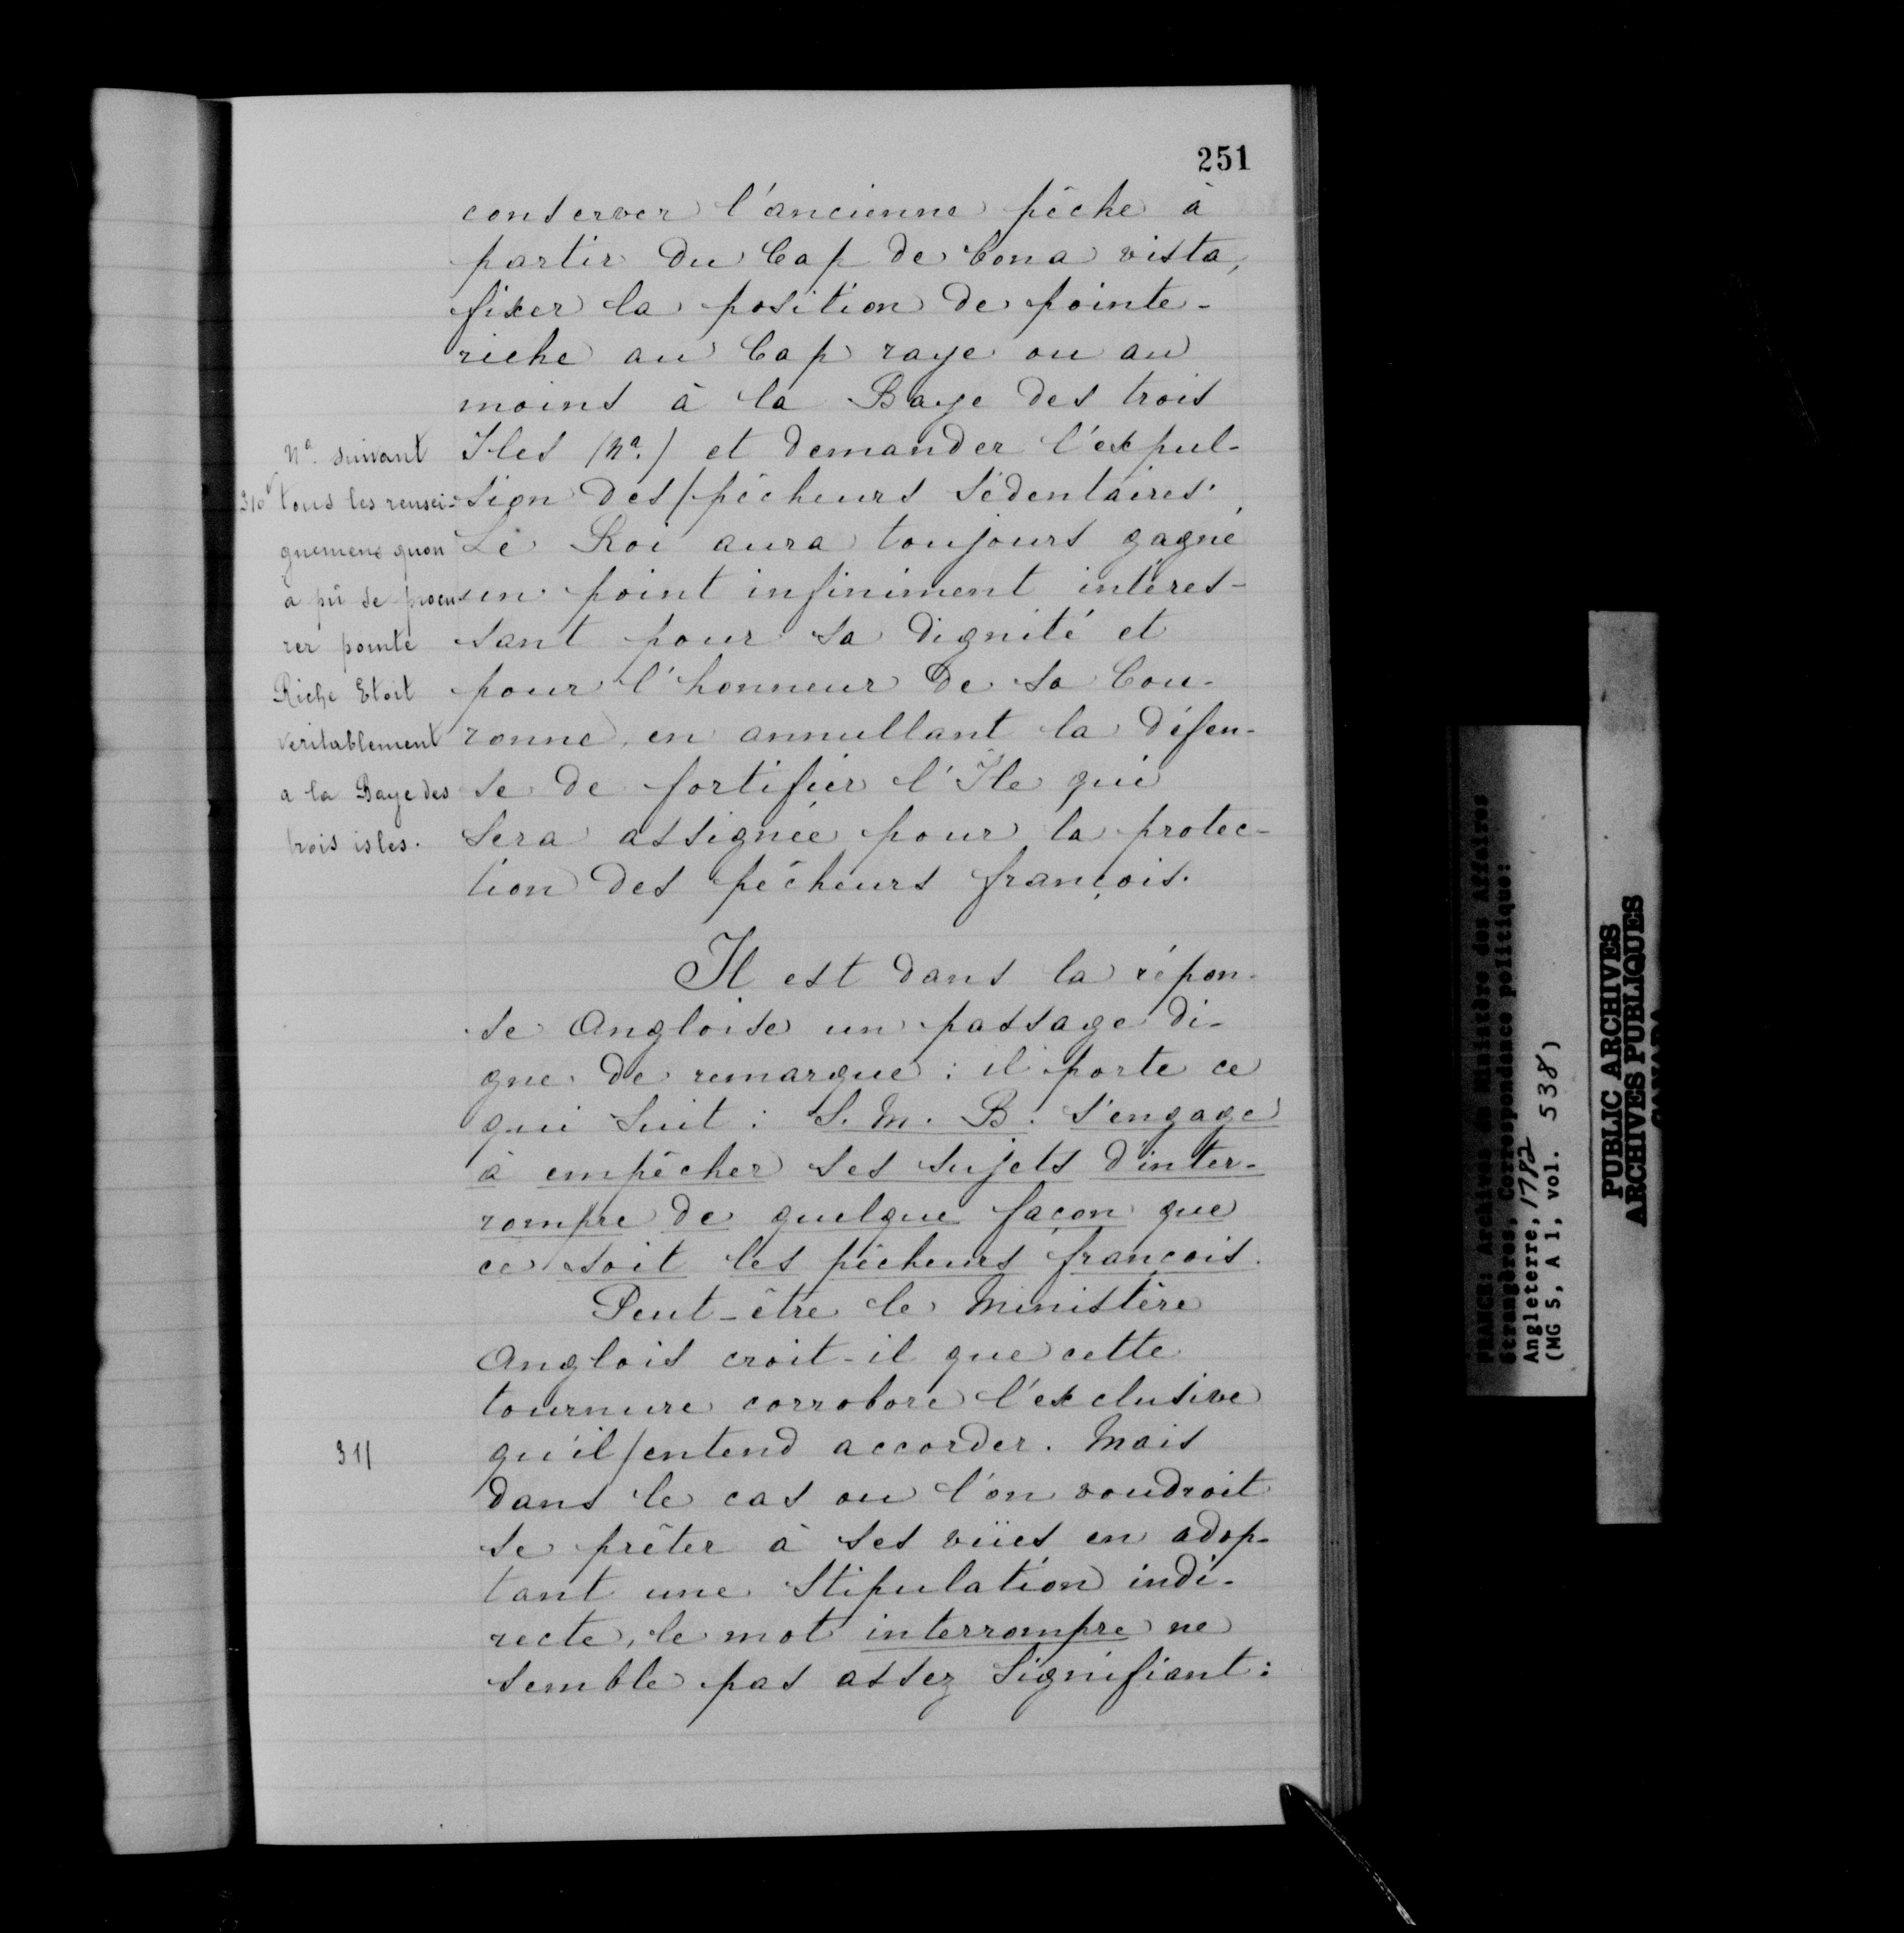 251
conserver l'ancienne pêche à
partir du Cap de bona vista,
fixer la position de pointe-
riche au Cap raye ou au
moins à la Baye des trois
Iles (Na.) et demander l'expul-
sion des/pêcheurs sédentaires.
Le Roi aura toujours gagné
un point infiniment intéres-
sant pour sa dignité et
pour l'honneur de sa Cou-
ronne, en annullant la défen-
se de fortifier l'Ile qui
sera assignée pour la protec-
tion des pêcheurs françois.
Na. suivant
310v tous les rensei-
gnemens quon
a pû se procu
rer pointe
Riche Etoit
veritablement
a la Baye des
trois isles.
Il est dans la répon-
se Angloise un passage di-
gne de remarque : il porte ce
qui suit : S. M. B. s'engage
à empêcher ses sujets d'inter-
rompre de quelque façon que
ce soit les pêcheurs françois.
Peut-être le Ministère
Anglois croit-il que cette
tournure corrobore l'exclusive
311
qu'il/entend accorder. Mais
dans le cas ou l'on voudroit
se prêter à ses vües en adop-
tant une stipulation indi-
recte, le mot interrompre ne
semble pas assez signifiant :
FRANCE: Archives du Ministère des Affaires
Etrangères, Correspondence politique:
Angleterre, 1782
(MG 5, A 1, vol. 538)
PUBLIC ARCHIVES
ARCHIVES PUBLIQUES
CANADA